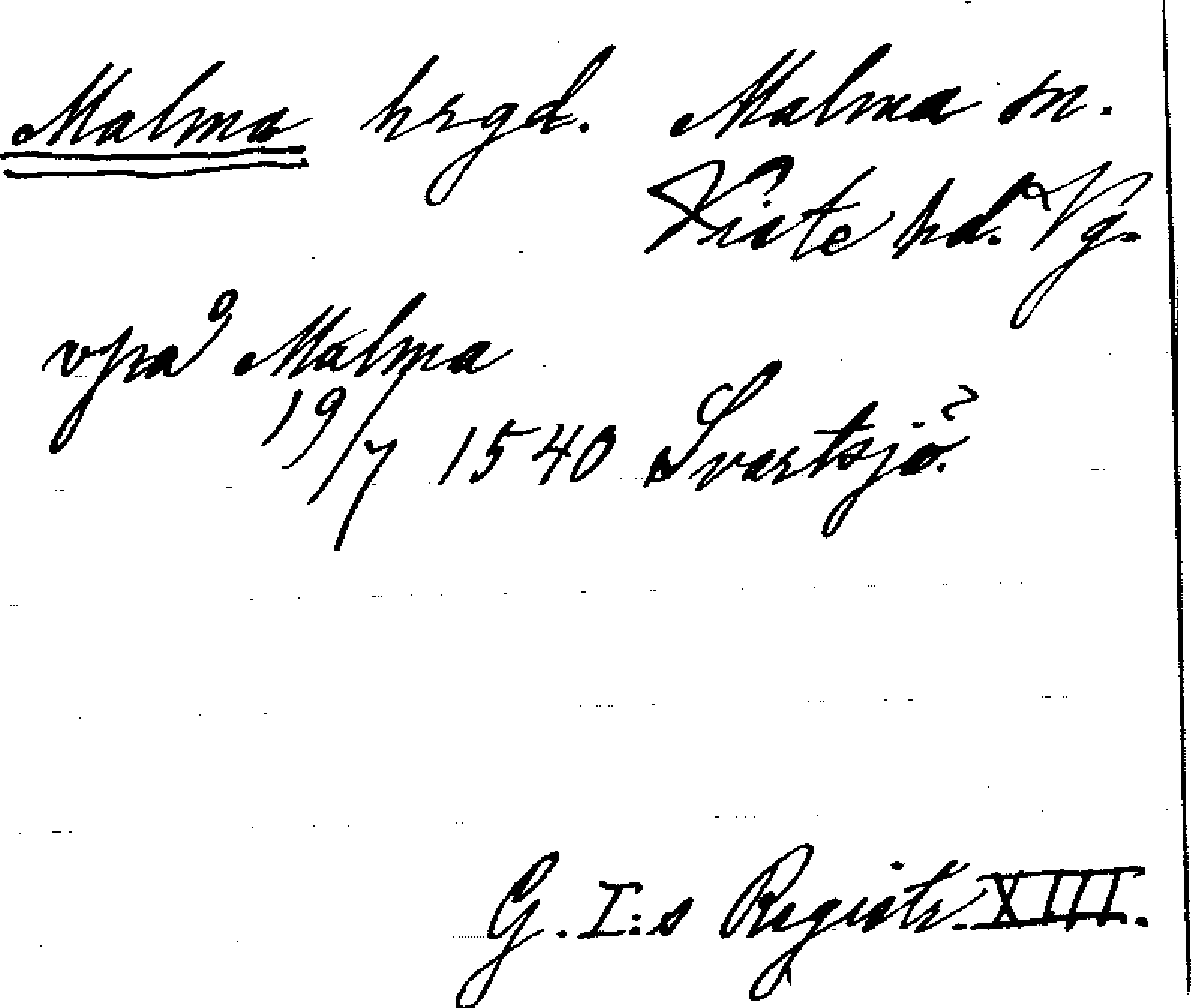 Malma hrgd. Malma sn.
Viste hd. Vg.
vpa Malma
19/7 1540 Svartsjö?
G. I:s Registr. XIII.